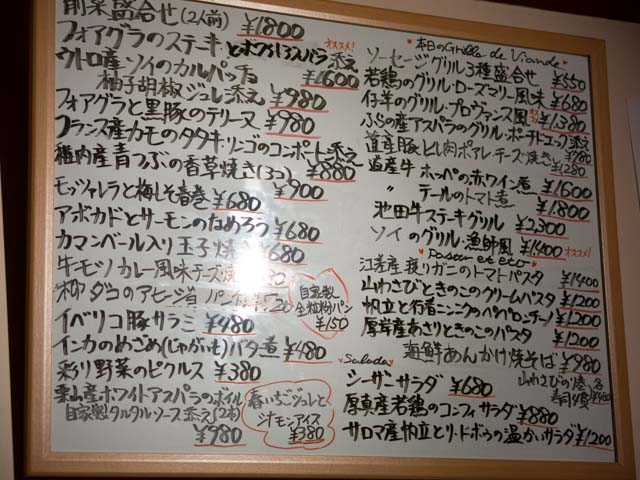 前菜盛合せ(2人前) ¥1800
フォアグラのステーキとホワイトアスパラ添え オススメ!
¥1600
ウトロ産ソイのカルパッチョ
柚子胡椒ジュレ添え ¥980
フォアグラと黒豚のテリーヌ ¥980
フランス産カモのタタキ・リンゴのコンポート添え
¥880
稚内産青つぶの香草焼き(3コ)
¥900
モッツァレラと梅しそ春巻 ¥680
アボカドとサーモンのなめろう ¥680
カマンベール入り玉子焼 ¥680
牛モツカレー風味チーズ焼
柳ダコのアヒージョ パン付 ¥720
自家製
全粒粉パン
¥150
イベリコ豚サラミ ¥480
インカのめざめ(じゃがいも)バター煮 ¥480
彩り野菜のピクルス ¥380
栗山産ホワイトアスパラのボイル
自家製タルタルソース添え(2本)
¥980
春いちごジュレと
シナモンアイス
¥380
本日のGrille de Viande
ソーセージグリル3種盛合せ ¥550
若鶏のグリル・ローズマリー風味 ¥680
仔羊のグリル・プロヴァンス風 ¥1380
ふらの産アスパラのグリル・ポーチドエッグ添え
¥980
道産豚ヒレ肉ポアレ・チーズ焼き ¥1280
道産牛 ホッペの赤ワイン煮 ¥1600
〃 テールのトマト煮 ¥1800
池田牛ステーキグリル ¥2,300
ソイのグリル・漁師風 ¥1400 オススメ!
Pasta et etc
渡りガニのトマトパスタ ¥1400
山わさびときのこのクリームパスタ ¥1200
帆立と行者ニンニクのペペロンチーノ ¥1200
厚岸産あさりときのこのパスタ ¥1200
海鮮あんかけ焼そば ¥980
山わさびの
寿司 ¥480
Salada
シーザーサラダ ¥680
厚真産若鶏のコンフィサラダ ¥880
サロマ産帆立とリ・ド・ボゥの温かいサラダ ¥1200